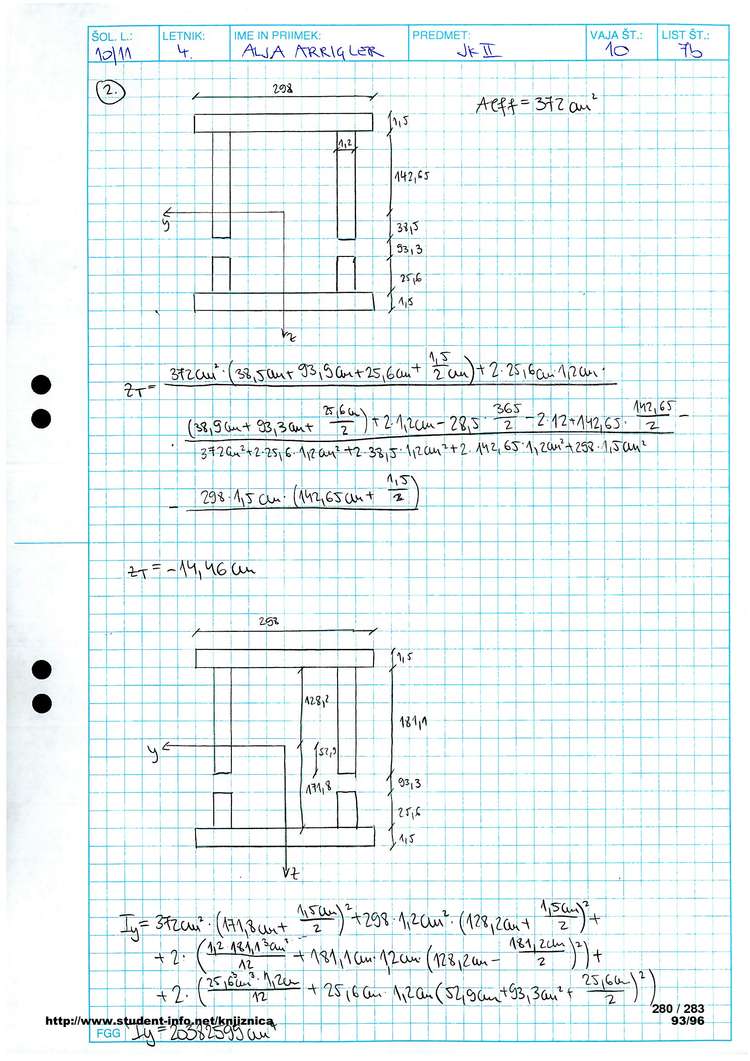 ŠOL. L.: LETNIK: IME IN PRIIMEK: PREDMET: VAJA ŠT.: LIST ŠT.:
10/11 4. ALJA ARRIGLER JK II 10 7b
2.
298
Aeff = 372 cm²
1,5
1,2
142,65
y
38,5
93,3
25,6
1,5
z
z_T = 372cm² · (38,5cm + 93,9cm + 25,6cm + 1,5/2 cm) + 2 · 25,6cm · 1,2cm ·
· (38,9cm + 93,3cm + 25,6cm/2) + 2 · 1,2cm - 28,5 · 365/2 - 2 · 12 + 142,65 · 142,65/2 -
372cm² + 2 · 25,6 · 1,2cm² + 2 · 38,5 · 1,2cm² + 2 · 142,65 · 1,2cm² + 298 · 1,5cm²
- 298 · 1,5cm · (142,65cm + 1,5/2)
z_T = -14,46 cm
298
1,5
128,2
181,1
y
52,9
171,8
93,3
25,6
1,5
z
I_y = 372cm² · (171,8cm + 1,5cm/2)² + 298 · 1,2cm² · (128,2cm + 1,5cm/2)² +
+ 2 · (1,2 · 181,1³cm²/12 + 181,1cm · 1,2cm (128,2cm - 181,2cm/2)²) +
+ 2 · (25,6³cm³ · 1,2cm/12 + 25,6cm · 1,2cm (52,9cm + 93,3cm² + 25,6cm/2)²)
280 / 283
http://www.student-info.net/knjiznica 93/96
FGG I_y = 20382599 cm⁴